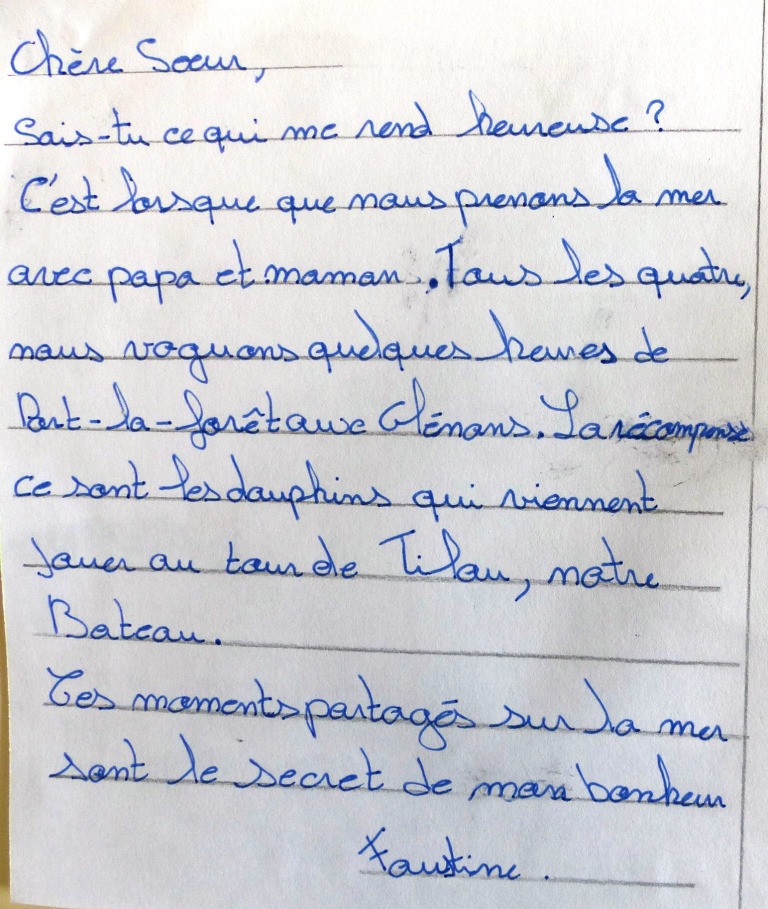 Chère Soeur,
Sais-tu ce qui me rend heureuse ?
C'est lorsque que nous prenons la mer
avec papa et maman. Tous les quatre,
nous voguons quelques heures de
Port-la-forêt aux Glénans. La récompense
ce sont les dauphins qui viennent
jouer au tour de Tilou, notre
Bateau.
Ces moments partagés sur la mer
sont le secret de mon bonheur
Faustine.